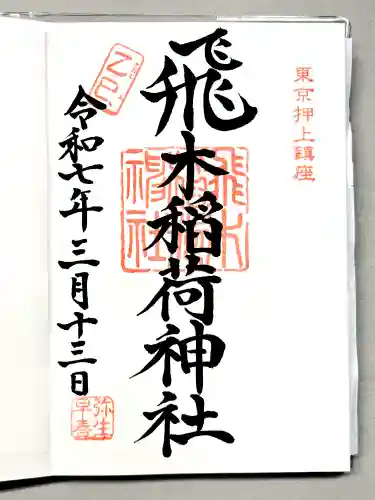 東京押上鎮座
飛木稲荷神社
令和七年三月十三日
弥生
早春